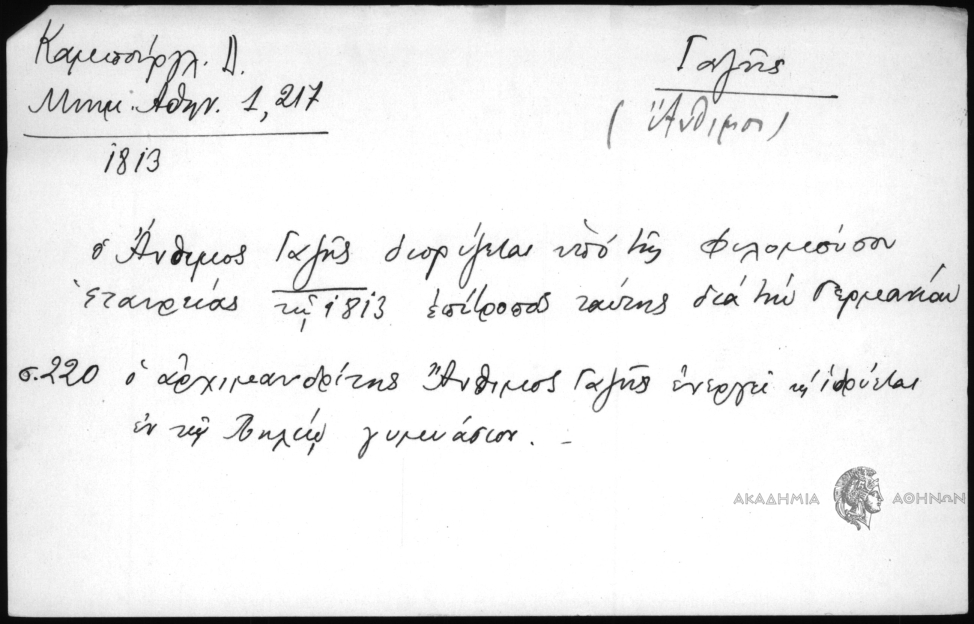 Καμπούργλ. Δ.
Μνημ. Αθην. 1, 217
1813
Γαζής
(Ἄνθιμος)
ὁ Ἄνθιμος Γαζῆς διορίζεται ὑπὸ τῆς Φιλομούσου
Ἑταιρείας τῷ 1813 ἐπίτροπος ταύτης διὰ τὴν Γερμανίαν
σ. 220 ὁ ἀρχιμανδρίτης Ἄνθιμος Γαζῆς ἐνεργεῖ ἱδρύεται
ἐν τῷ Πηλίῳ γυμνάσιον. -
ΑΚΑΔΗΜΙΑ ΑΘΗΝΩΝ